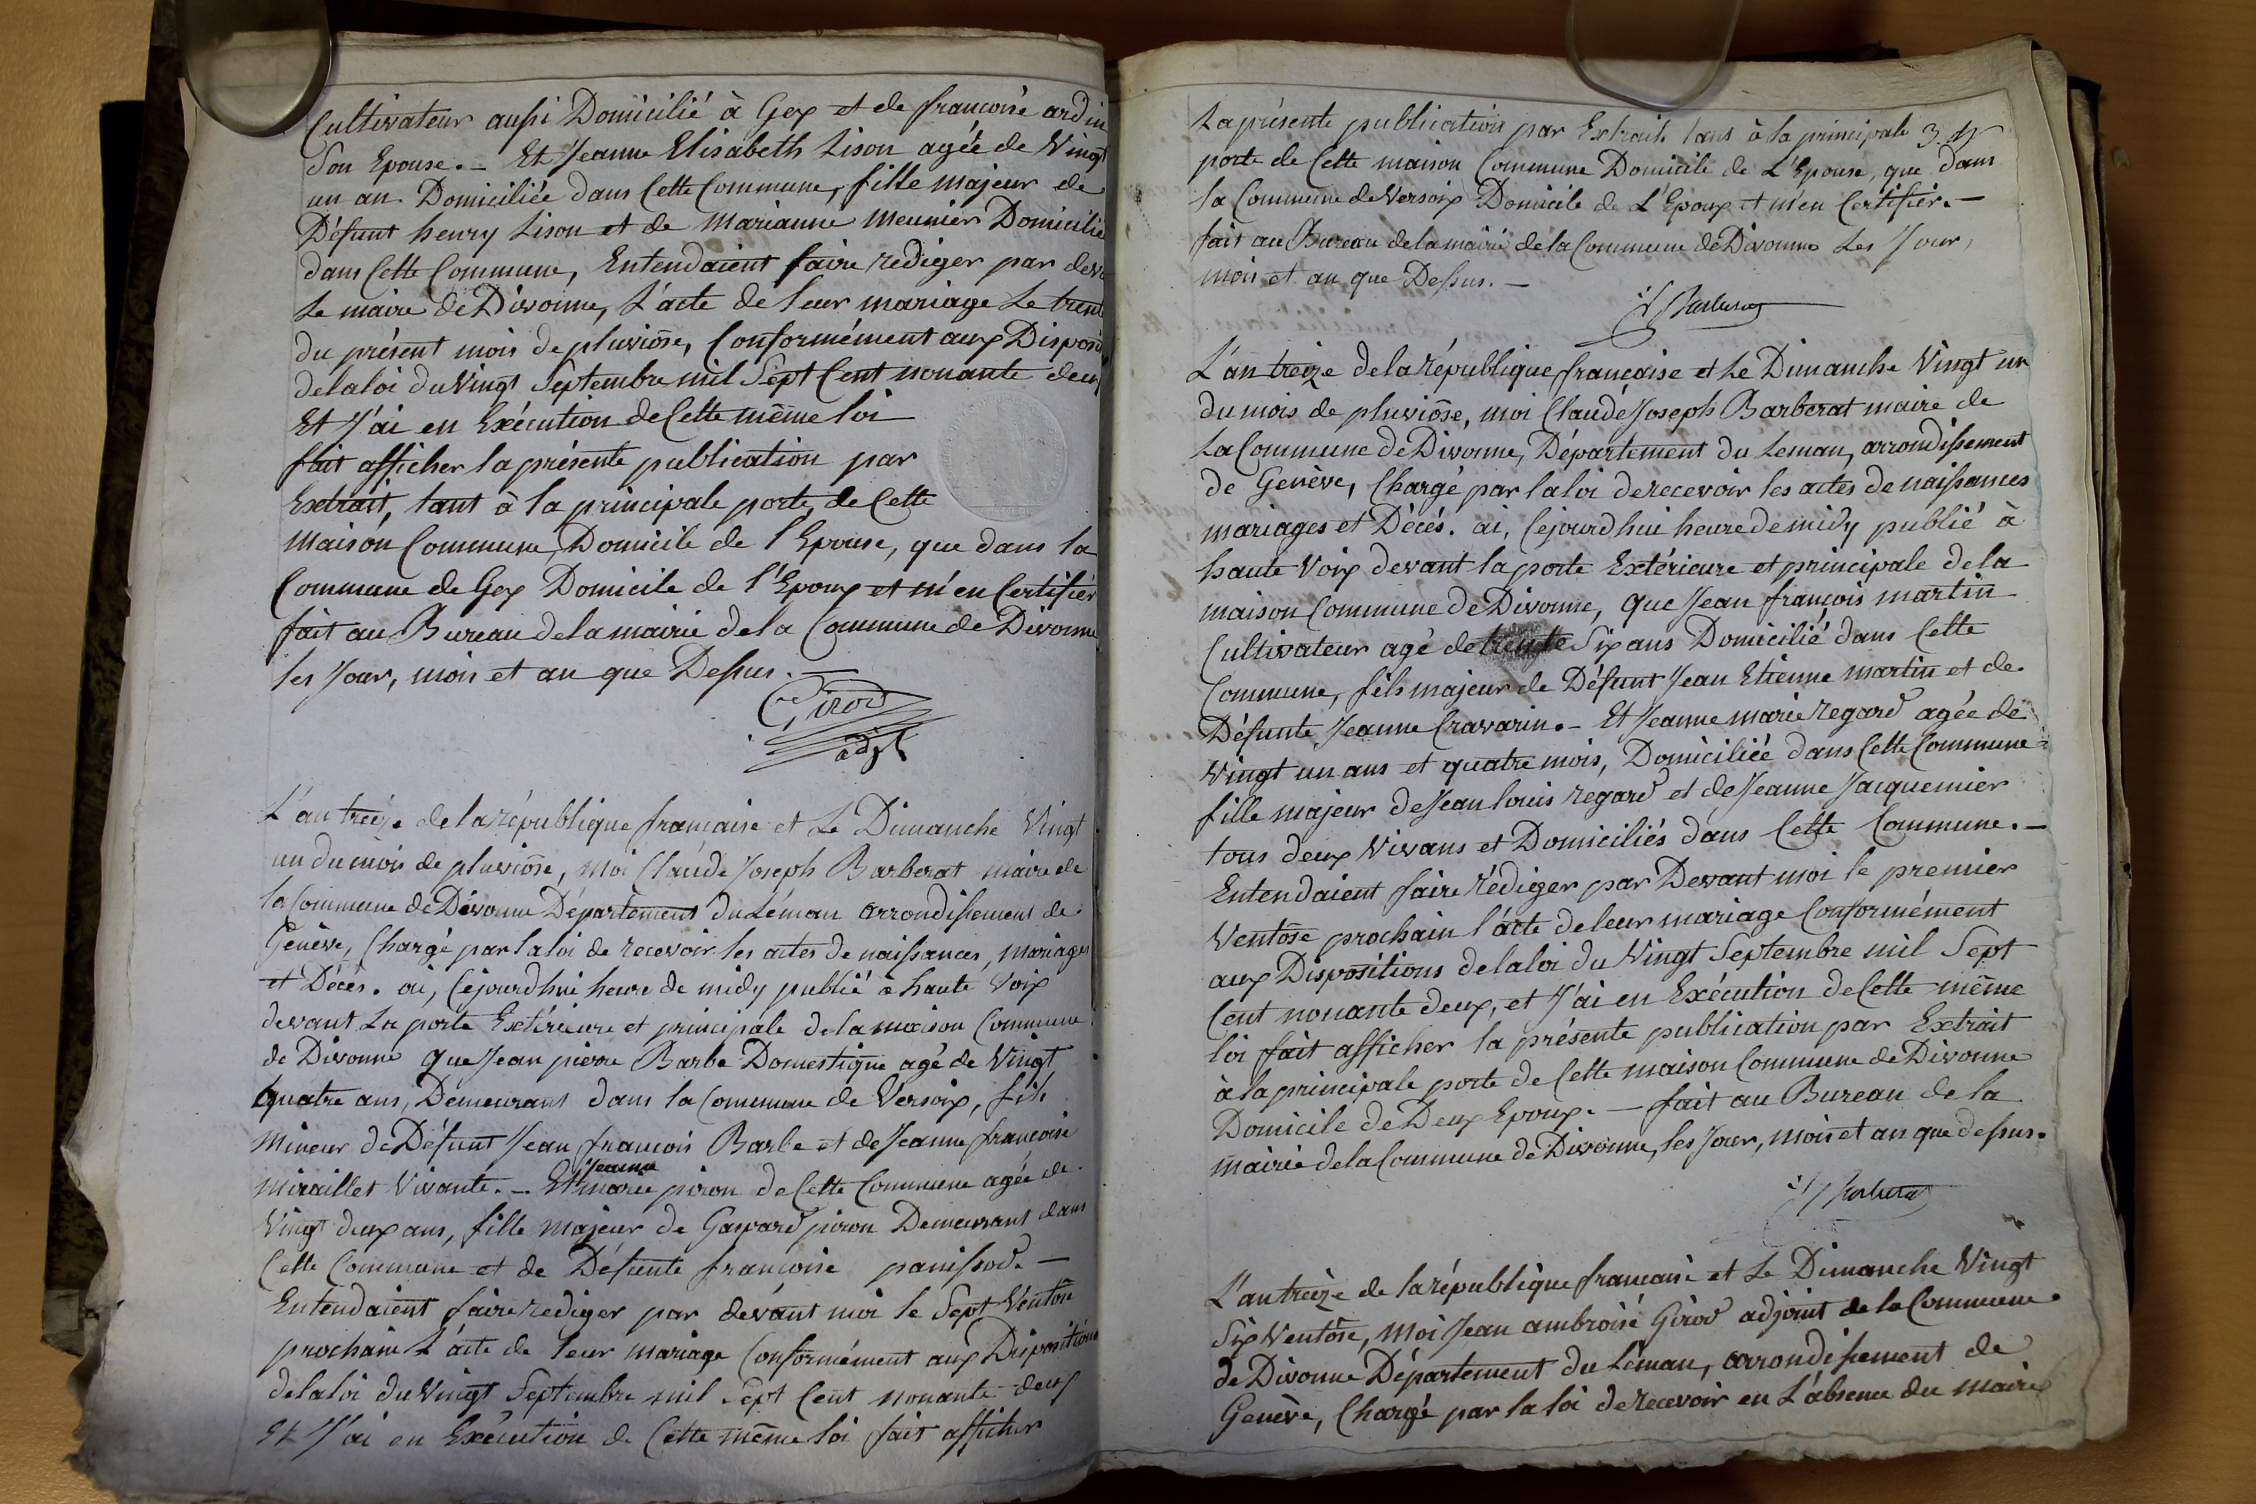 Cultivateur aussi Domicilié à Gex et de françoise ardin
Son Epouse. – Et Jeanne Elisabeth Lison agée de Vingt
un an. Domiciliée dans Cette Commune, fille majeur de
Défunt henry Lison et de Marianne Meunier Domicilié
dans Cette Commune, Entendaient faire rediger par deva
Le maire de Divonne, L'acte de leur mariage Le trente
du présent mois de pluviôse, Conformément aux Disposi
de la loi du Vingt Septembre mil Sept Cent nonante deux
Et J'ai en Exécution de Cette même loi
fait afficher la présente publication par
Extrait, tant à la principale porte de Cette
maison Commune, Domicile de l'Epouse, que dans la
Commune de Gex Domicile de l'Epoux et m'en Certifier
fait au Bureau de la mairie de la Commune de Divonne
les Jour, mois et an que Dessus. –
Girod
adjt
L'an treize de la république française et Le Dimanche Vingt
un du mois de pluviôse, Moi Claude Joseph Barberat maire de
la Commune de Divonne Département du Léman arrondissement de
Genève, Chargé par la loi de recevoir les actes de naissances, mariages
et Décés. ai, Cejourdhui heure de midy publié à haute Voix
devant La porte Extérieure et principale de la maison Commune
de Divonne que Jean pierre Barbe Domestique agé de Vingt
quatre ans, Demeurant dans la Commune de Versoix, fils
Mineur de Défunt Jean françois Barbe et de Jeanne françoise
miraillet Vivante. – Et Jeanne marie piron de Cette Commune agée de
Vingt deux ans, fille majeur de Gaspard piron Demeurant dans
Cette Commune et de Défunte françoise panissod. –
Entendaient faire rediger par devant moi le Sept Ventôse
prochain L'acte de leur mariage Conformément aux Dispositions
de la loi du Vingt Septembre mil Sept Cent nonante deux
Et J'ai en Exécution de Cette même loi fait afficher
La présente publication par Extrait, tant à la principale
porte de Cette maison Commune Domicile de L'Epouse, que dans
la Commune de Versoix Domicile de L'Epoux et m'en Certifier. –
fait au Bureau de la mairie de la Commune de Divonne Les Jour,
mois et an que Dessus. –
Barberat
L'an treize de la république française et Le Dimanche Vingt un
du mois de pluviôse, moi Claude Joseph Barberat maire de
La Commune de Divonne, Département du Leman, arrondissement
de Genève, Chargé par la loi de recevoir les actes de naissances
mariages et Décés. ai, Cejourdhui heure de midy publié à
haute Voix devant la porte Extérieure et principale de la
maison Commune de Divonne, que Jean françois martin
Cultivateur agé de trente Six ans Domicilié dans Cette
Commune, fils majeur de Défunt Jean Etienne martin et de
Défunte Jeanne Cravarin. – Et Jeanne marie regard agée de
Vingt un ans et quatre mois, Domiciliée dans Cette Commune
fille majeur de Jean louis regard et de Jeanne Jacquemier
tous deux Vivans et Domiciliés dans Cette Commune. –
Entendaient faire rédiger par Devant moi le premier
Ventôse prochain l'acte de leur mariage Conformément
aux Dispositions de la loi du Vingt Septembre mil Sept
Cent nonante deux, et J'ai en Exécution de Cette même
loi fait afficher la présente publication par Extrait
à la principale porte de Cette maison Commune de Divonne
Domicile de Deux Epoux. – fait au Bureau de la
mairie de la Commune de Divonne, les Jour, mois et an que dessus.
Barberat
L'an treize de la république française et Le Dimanche Vingt
Six Ventôse, Moi Jean ambroise Girod adjoint de la Commune
de Divonne Département du Léman, arrondissement de
Genève, Chargé par la loi de recevoir en L'absence du maire